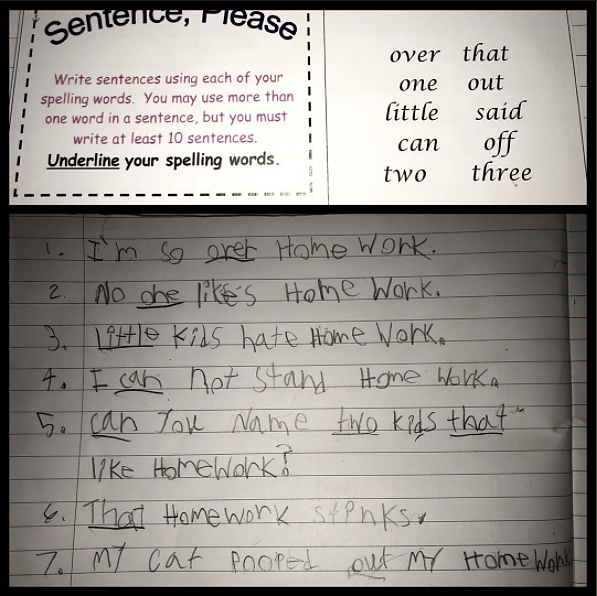 Sentence, Please
Write sentences using each of your
spelling words. You may use more than
one word in a sentence, but you must
write at least 10 sentences.
Underline your spelling words.
over that
one out
little said
can off
two three
1. I'm so over Home Work.
2. No one like's Home Work.
3. Little kids hate Home Work.
4. I can not stand Home Work.
5. can You Name two kids that
like HomeWork?
6. That Homework stinks.
7. My cat Pooped out My HomeWork